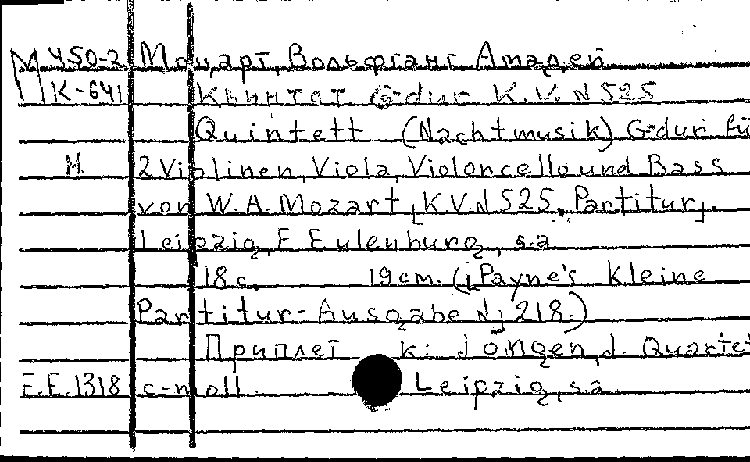 М 450-2 Моцарт, Вольфганг Амадей
К-641 Квинтет G-dur K.V.N 525
Quintett (Nachtmusik) G-dur fü
М 2 Violinen, Viola, Violoncello und Bass
von W.A. Mozart, K.V.N 525. Partitur.
Leipzig, E. Eulenburg, s.a.
18 с. 19 см. (Payne's Kleine
Partitur-Ausgabe N 218.)
Приплет к: Jongen, J. Quartet
E.E.1318 c-moll. Leipzig, s.a.